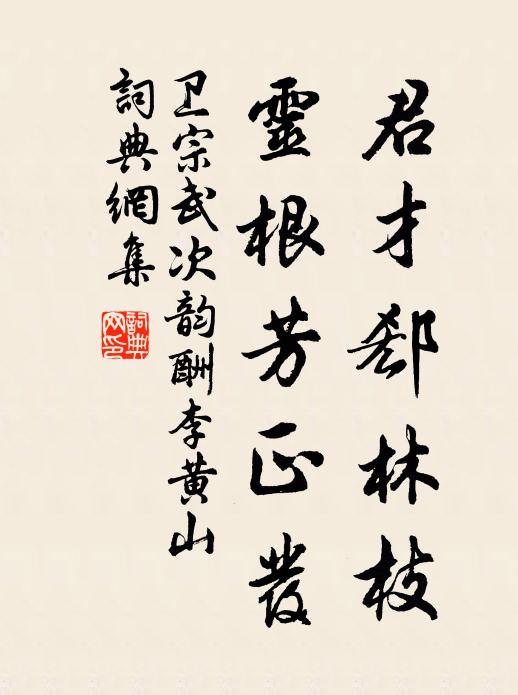 君才郄林枝
靈根芳正發
卫宗武次韵酬李黄山
詞典網集
詞典网印